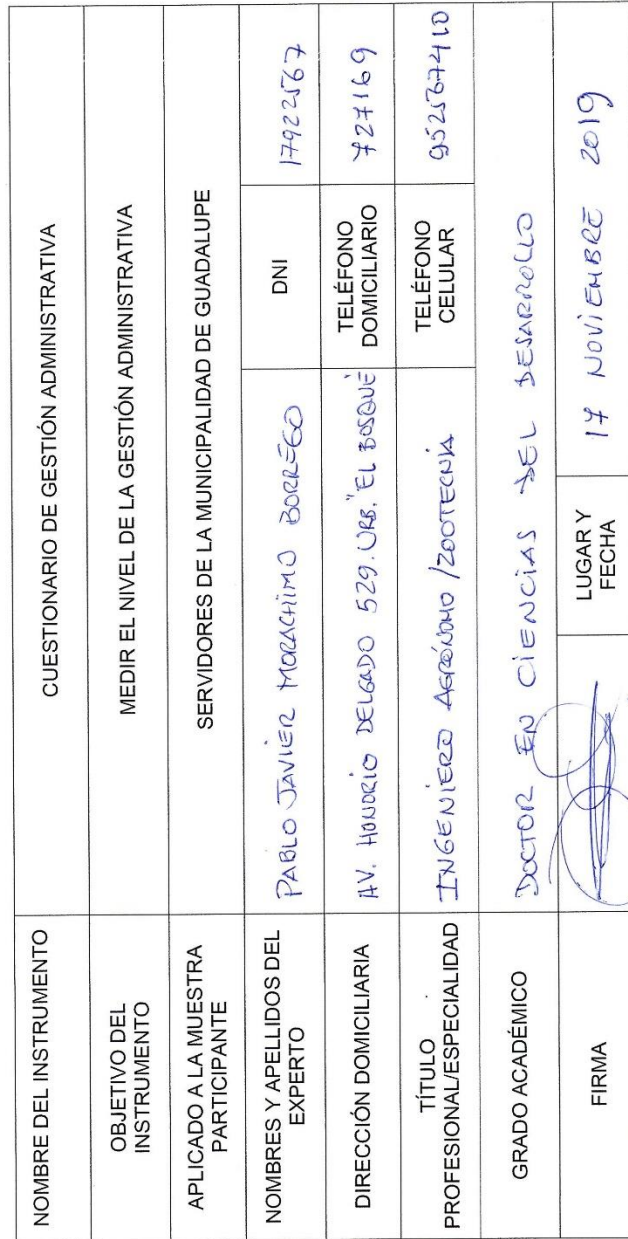 NOMBRE DEL INSTRUMENTO
CUESTIONARIO DE GESTIÓN ADMINISTRATIVA
OBJETIVO DEL
INSTRUMENTO
MEDIR EL NIVEL DE LA GESTIÓN ADMINISTRATIVA
APLICADO A LA MUESTRA
PARTICIPANTE
SERVIDORES DE LA MUNICIPALIDAD DE GUADALUPE
NOMBRES Y APELLIDOS DEL
EXPERTO
PABLO JAVIER MORACHIMO BORREGO
DNI
17922567
DIRECCIÓN DOMICILIARIA
AV. HONORIO DELGADO 529. URB. "EL BOSQUE"
TELÉFONO
DOMICILIARIO
727169
TÍTULO
PROFESIONAL/ESPECIALIDAD
INGENIERO AGRÓNOMO / ZOOTECNIA
TELÉFONO
CELULAR
952567410
GRADO ACADÉMICO
DOCTOR EN CIENCIAS DEL DESARROLLO
FIRMA
LUGAR Y
FECHA
17 NOVIEMBRE 2019